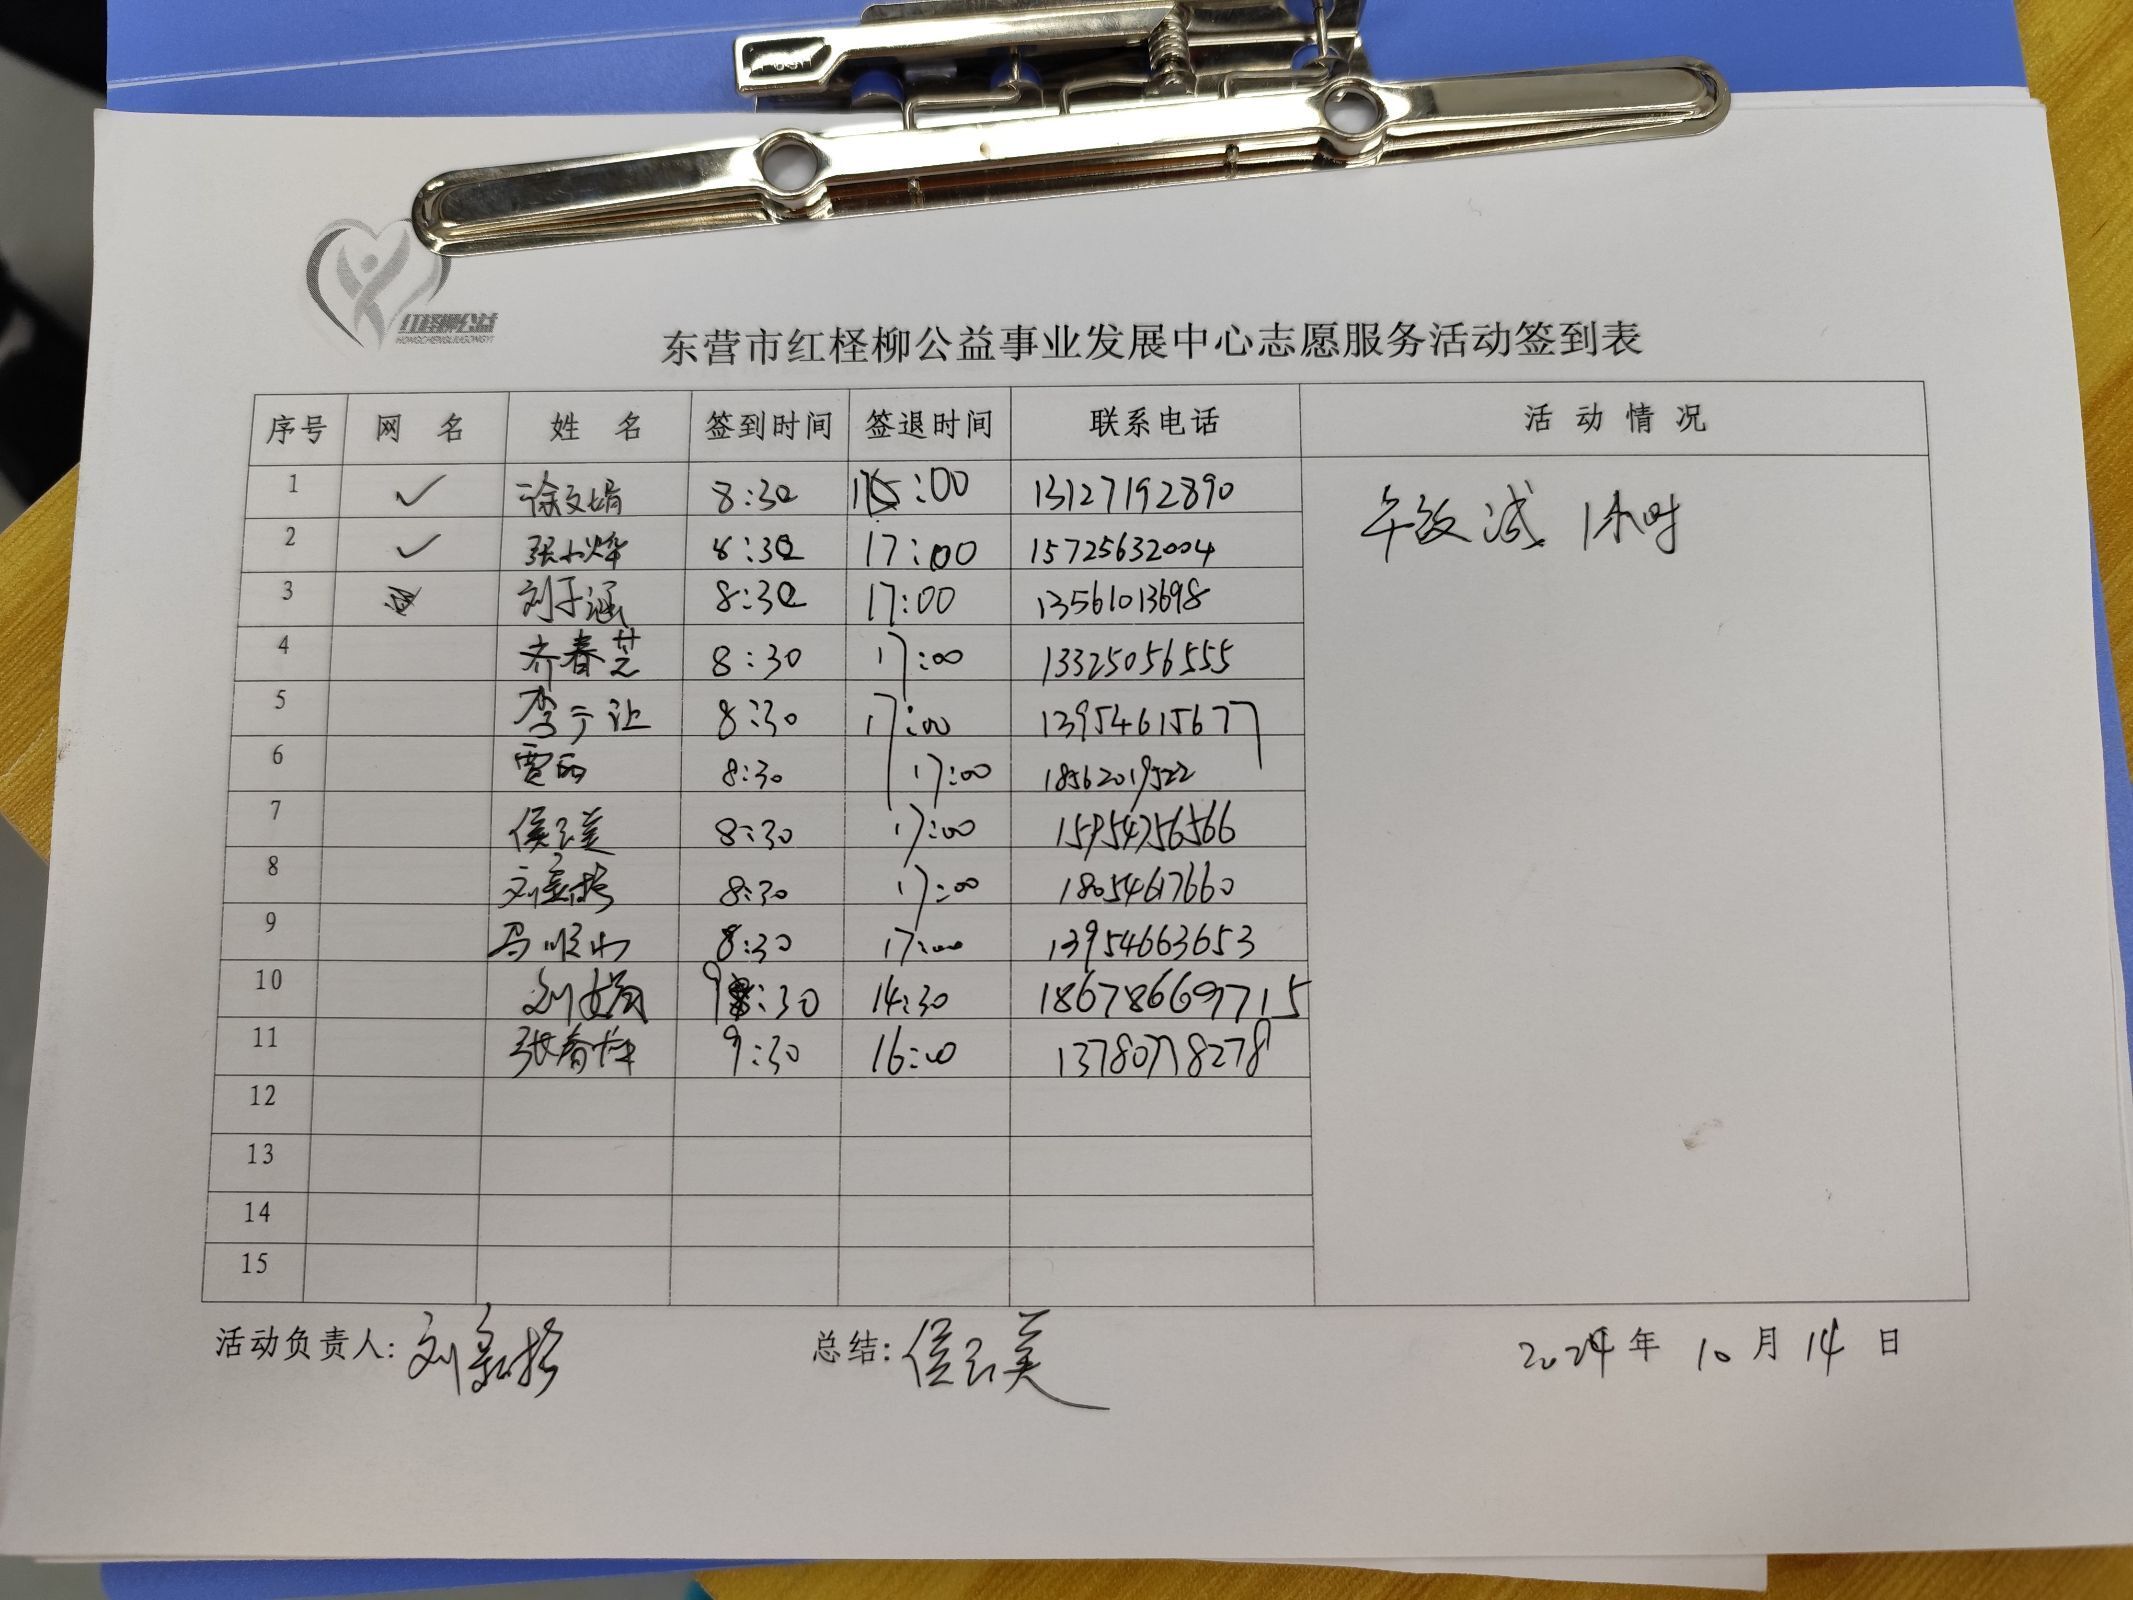 红柽柳公益
HONGCHENGLIUGONGYI
东营市红柽柳公益事业发展中心志愿服务活动签到表
序号 网 名 姓 名 签到时间 签退时间 联系电话 活 动 情 况
1 ✓ 徐文娟 8:30 :00 13127192890 午饭减 1小时
2 ✓ 张小烨 8:30 17:00 15725632004
3 刘子涵 8:30 17:00 13561013698
4 齐春芝 8:30 17:00 13325056555
5 李广让 8:30 17:00 13954615677
6 贾丽 8:30 17:00 18562019522
7 侯云美 8:30 17:00 15954756566
8 刘 8:30 17:00 18054617660
9 马顺 8:30 17:00 13954663653
10 刘娟 9:30 14:30 18678669715
11 张春 9:30 16:00 13780778278
12
13
14
15
活动负责人: 刘 总结: 侯云美 2024年 10月14日